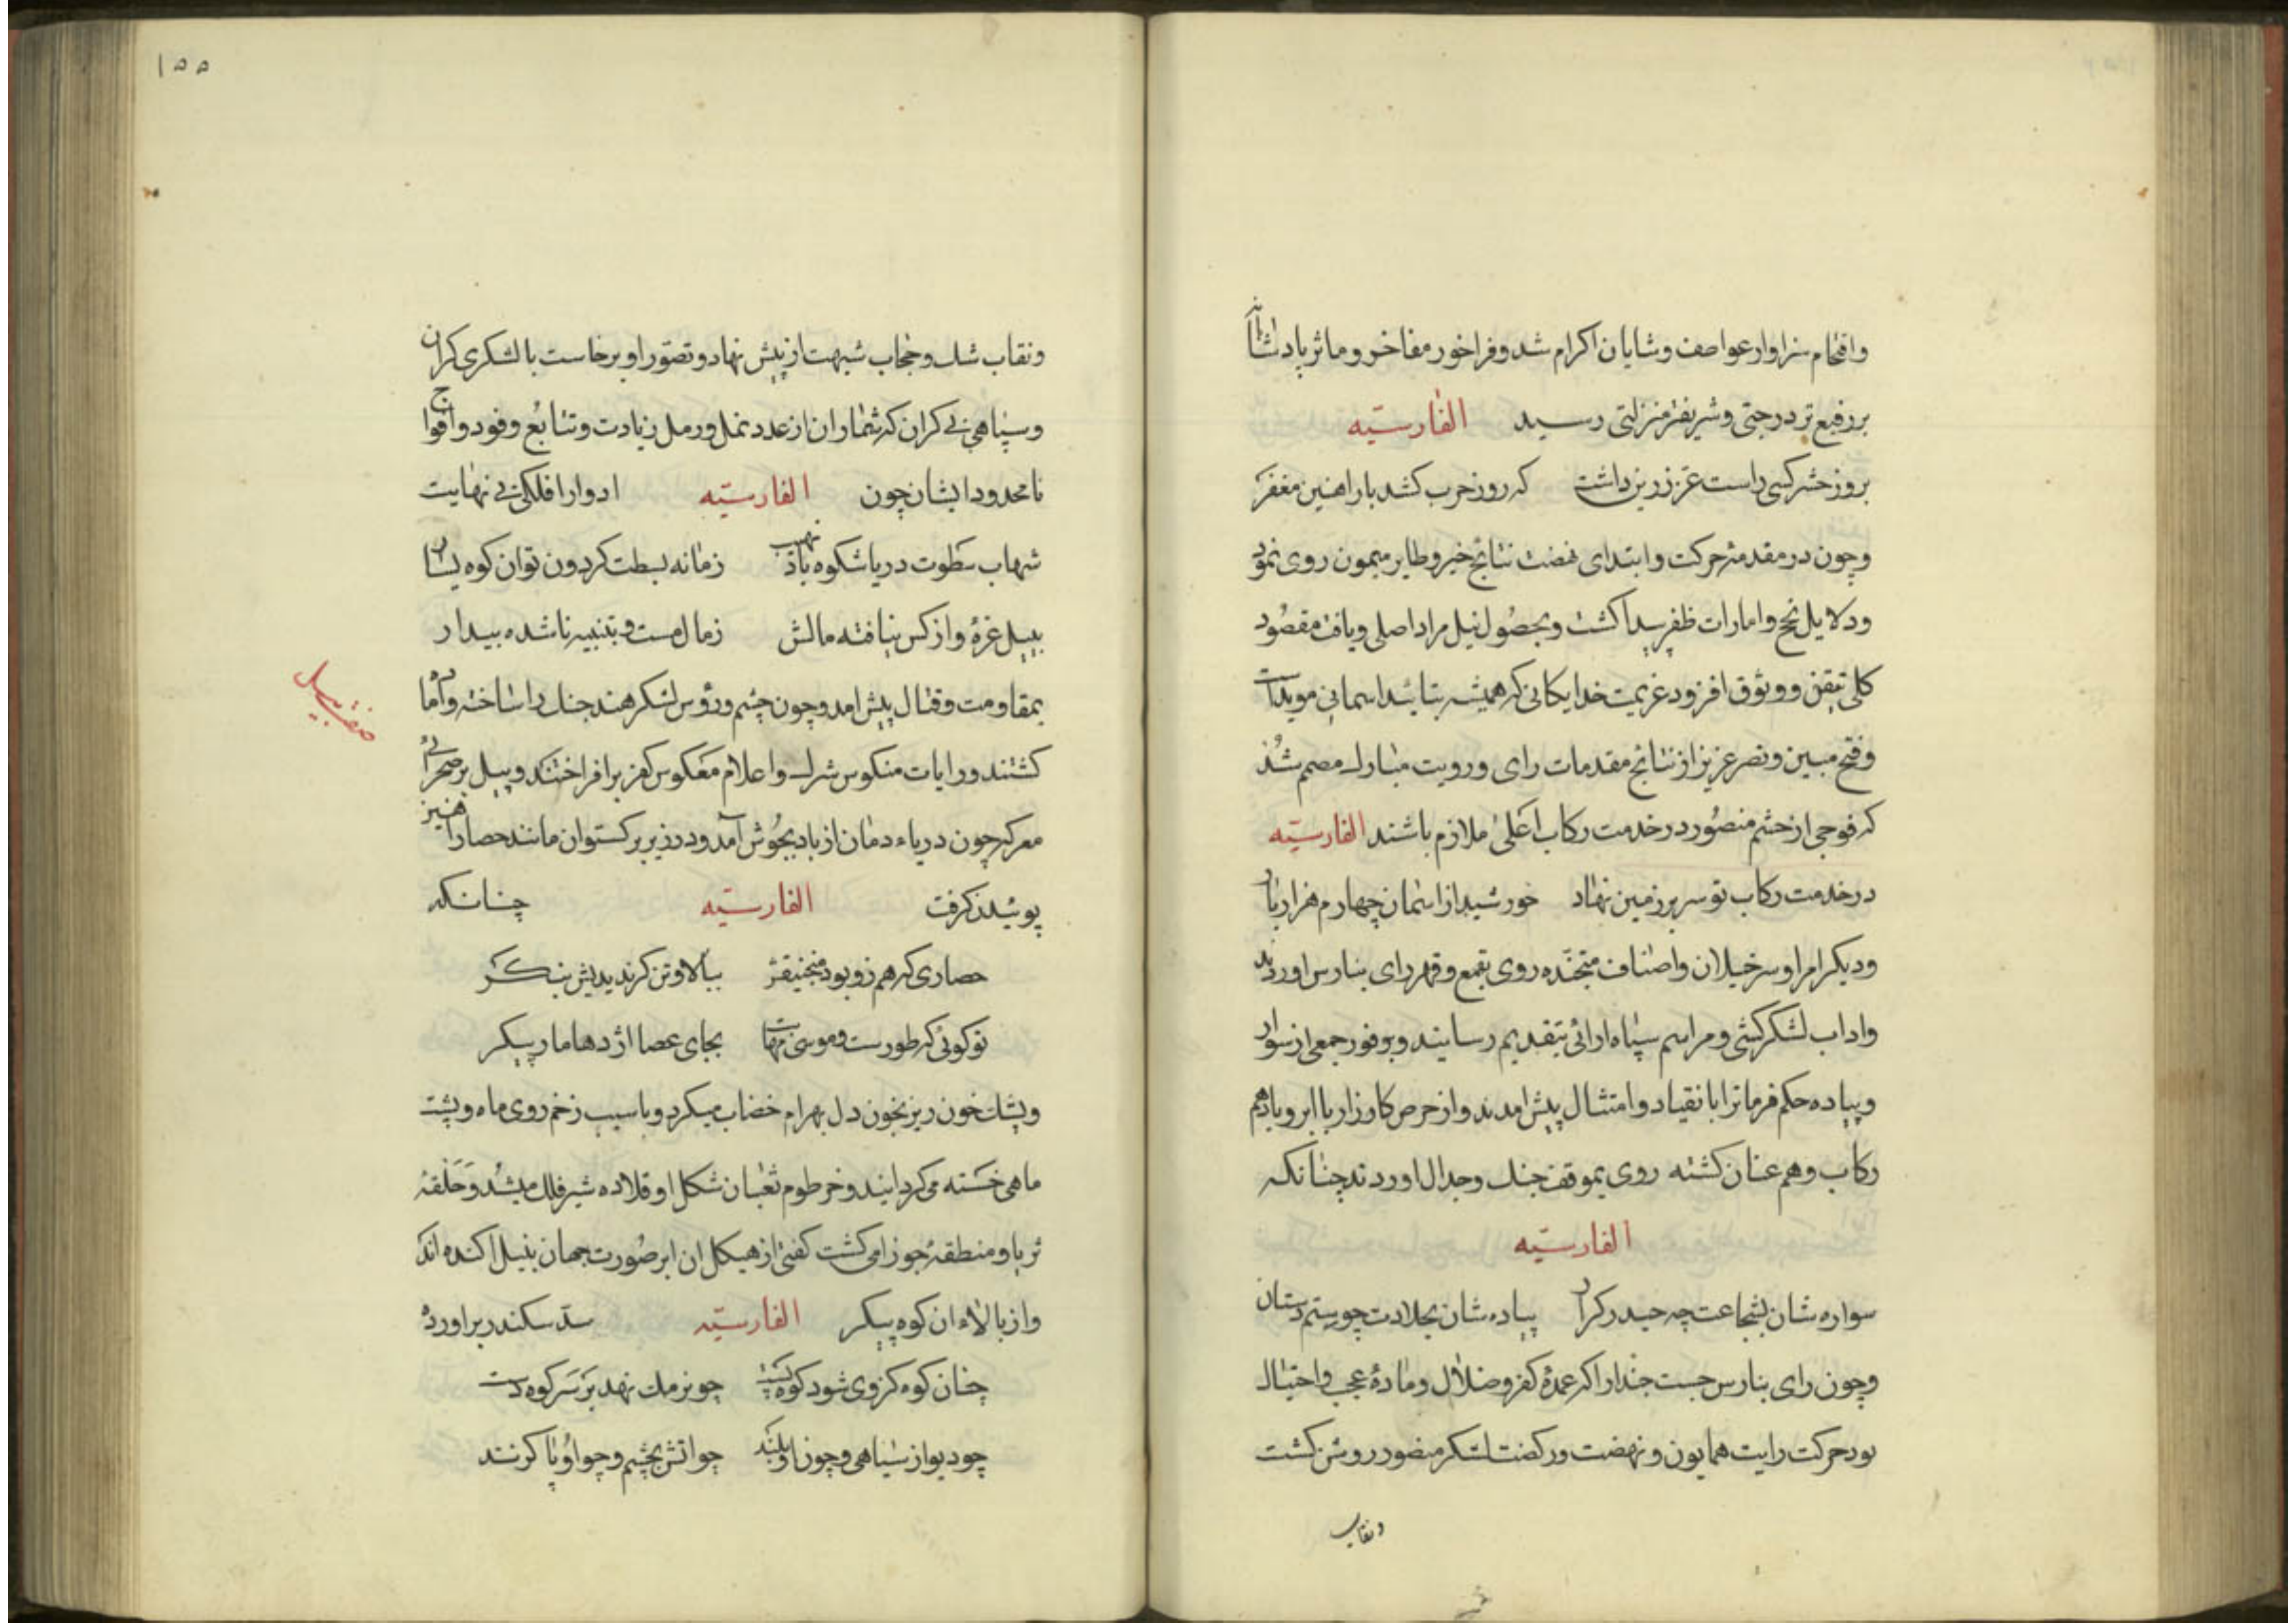 واقتحام سزاوار عواطف وشایان اکرام شد وفراخور مفاخر وماثر پادشاهانه
بر رفیع تر درجتی وشریفتر منزلتی رسید الفارسیّه
بروز حشر کسی راست عز زرین داشت که روز حرب کشد بار اهنین مغفر
وچون در مقدمهٔ حرکت وابتدای نهضت نتایج خیر وطایر میمون روی نمود
ودلایل نجح وامارات ظفر پیدا کشت وبحصول نیل مراد اصلی ویافت مقصود
کلی تیقن ووثوق افزود عزیمت خدایکانی که همیشه بتائید اسمانی موید است
وفتح مبین ونصر عزیز از نتایج مقدمات رای ورویت مبارک مصمم شد
که فوجی از حشم منصور در خدمت رکاب اعلیٰ ملازم باشند الفارسیّه
در خدمت رکاب تو سر بر زمین نهاد خورشید از اسمان چهارم هزار بار
ودیکر امرا وسرخیلان واصناف متجنّده روی بقمع وقهر رای بنارس اوردند
واداب لشکرکشی ومراسم سپاه ارائی بتقدیم رسانیدند وبوفور جمعی از سوار
وپیاده حکم فرمانرا بانقیاد وامتثال پیش امدند واز حرص کارزار با ابر وباد هم
رکاب وهم عنان کشته روی بموقف جنک وجدال اوردند چنانکه
الفارسیّه
سواره شان بشجاعت چه حیدر کرار پیاده شان بجلادت چو رستم دستان
وچون رای بنارس جیت چند را که عمدهٔ کفر وضلال ومادهٔ عجب واختیال
بود حرکت رایت همایون ونهضت ورکضت لشکر منصور روشن کشت
ونقاب
۱۵۵
ونقاب شک وحجاب شبهت از پیش نهاد وتصوّر او برخاست با لشکری کران
وسپاهی بی کران که شمار ان از عدد نمل ورمل زیادت وتتابُع وفود وافواج
نامحدود ایشان چون الفارسیّه ادوار افلاک بی نهایت
شهاب سطوت دریا شکوه باد نهیب زمانه بسطت کردون توان کوه یسار
بپیل غرهٔ واز کس نیافته مالش زمال مست وبتنبیه ناشده بیدار
بمقاومت وقتال پیش امد وچون چشم ورؤس لشکر هند جنک را ساخته واماده
کشتند ورایات منکوس شرک واعلام معکوس کفر برافراختند وپیل بر صحرای
معرکه چون دریاء دمان از باد بجُوش آمد ودر زیر برکستوان مانند حصار اهنین
پوشیدن کرفت الفارسیّه چنانکه
حصاری که هم زو بود منجنیقش ببالا وتن کر ندیدیش بنکر
تو کوئی که طورست وموسی مهابت بجای عصا اژدها مار پیکر
ویشک خون ریز بخون دل بهرام خضاب میکرد وباسیب زخم روی ماه وپشت
ماهی خسته می کردانید وخرطوم ثعبان شکل او قلادهٔ شیر فلک میشد وحلقهٔ
ثریا ومنطقهٔ جوزا می کشت کفتی از هیکل ان ابر صورت جهان بنیل اکنده اند
واز بالاء ان کوه پیکر الفارسیّه سدّ سکندر براورده
چنان کوه کز وی شود کوه پست چو نرمک نهد بر سر کوه دست
چو دیو از سیاهی وچون او بلند چو اتش بچشم وچو او پا کرند
صفت پیل